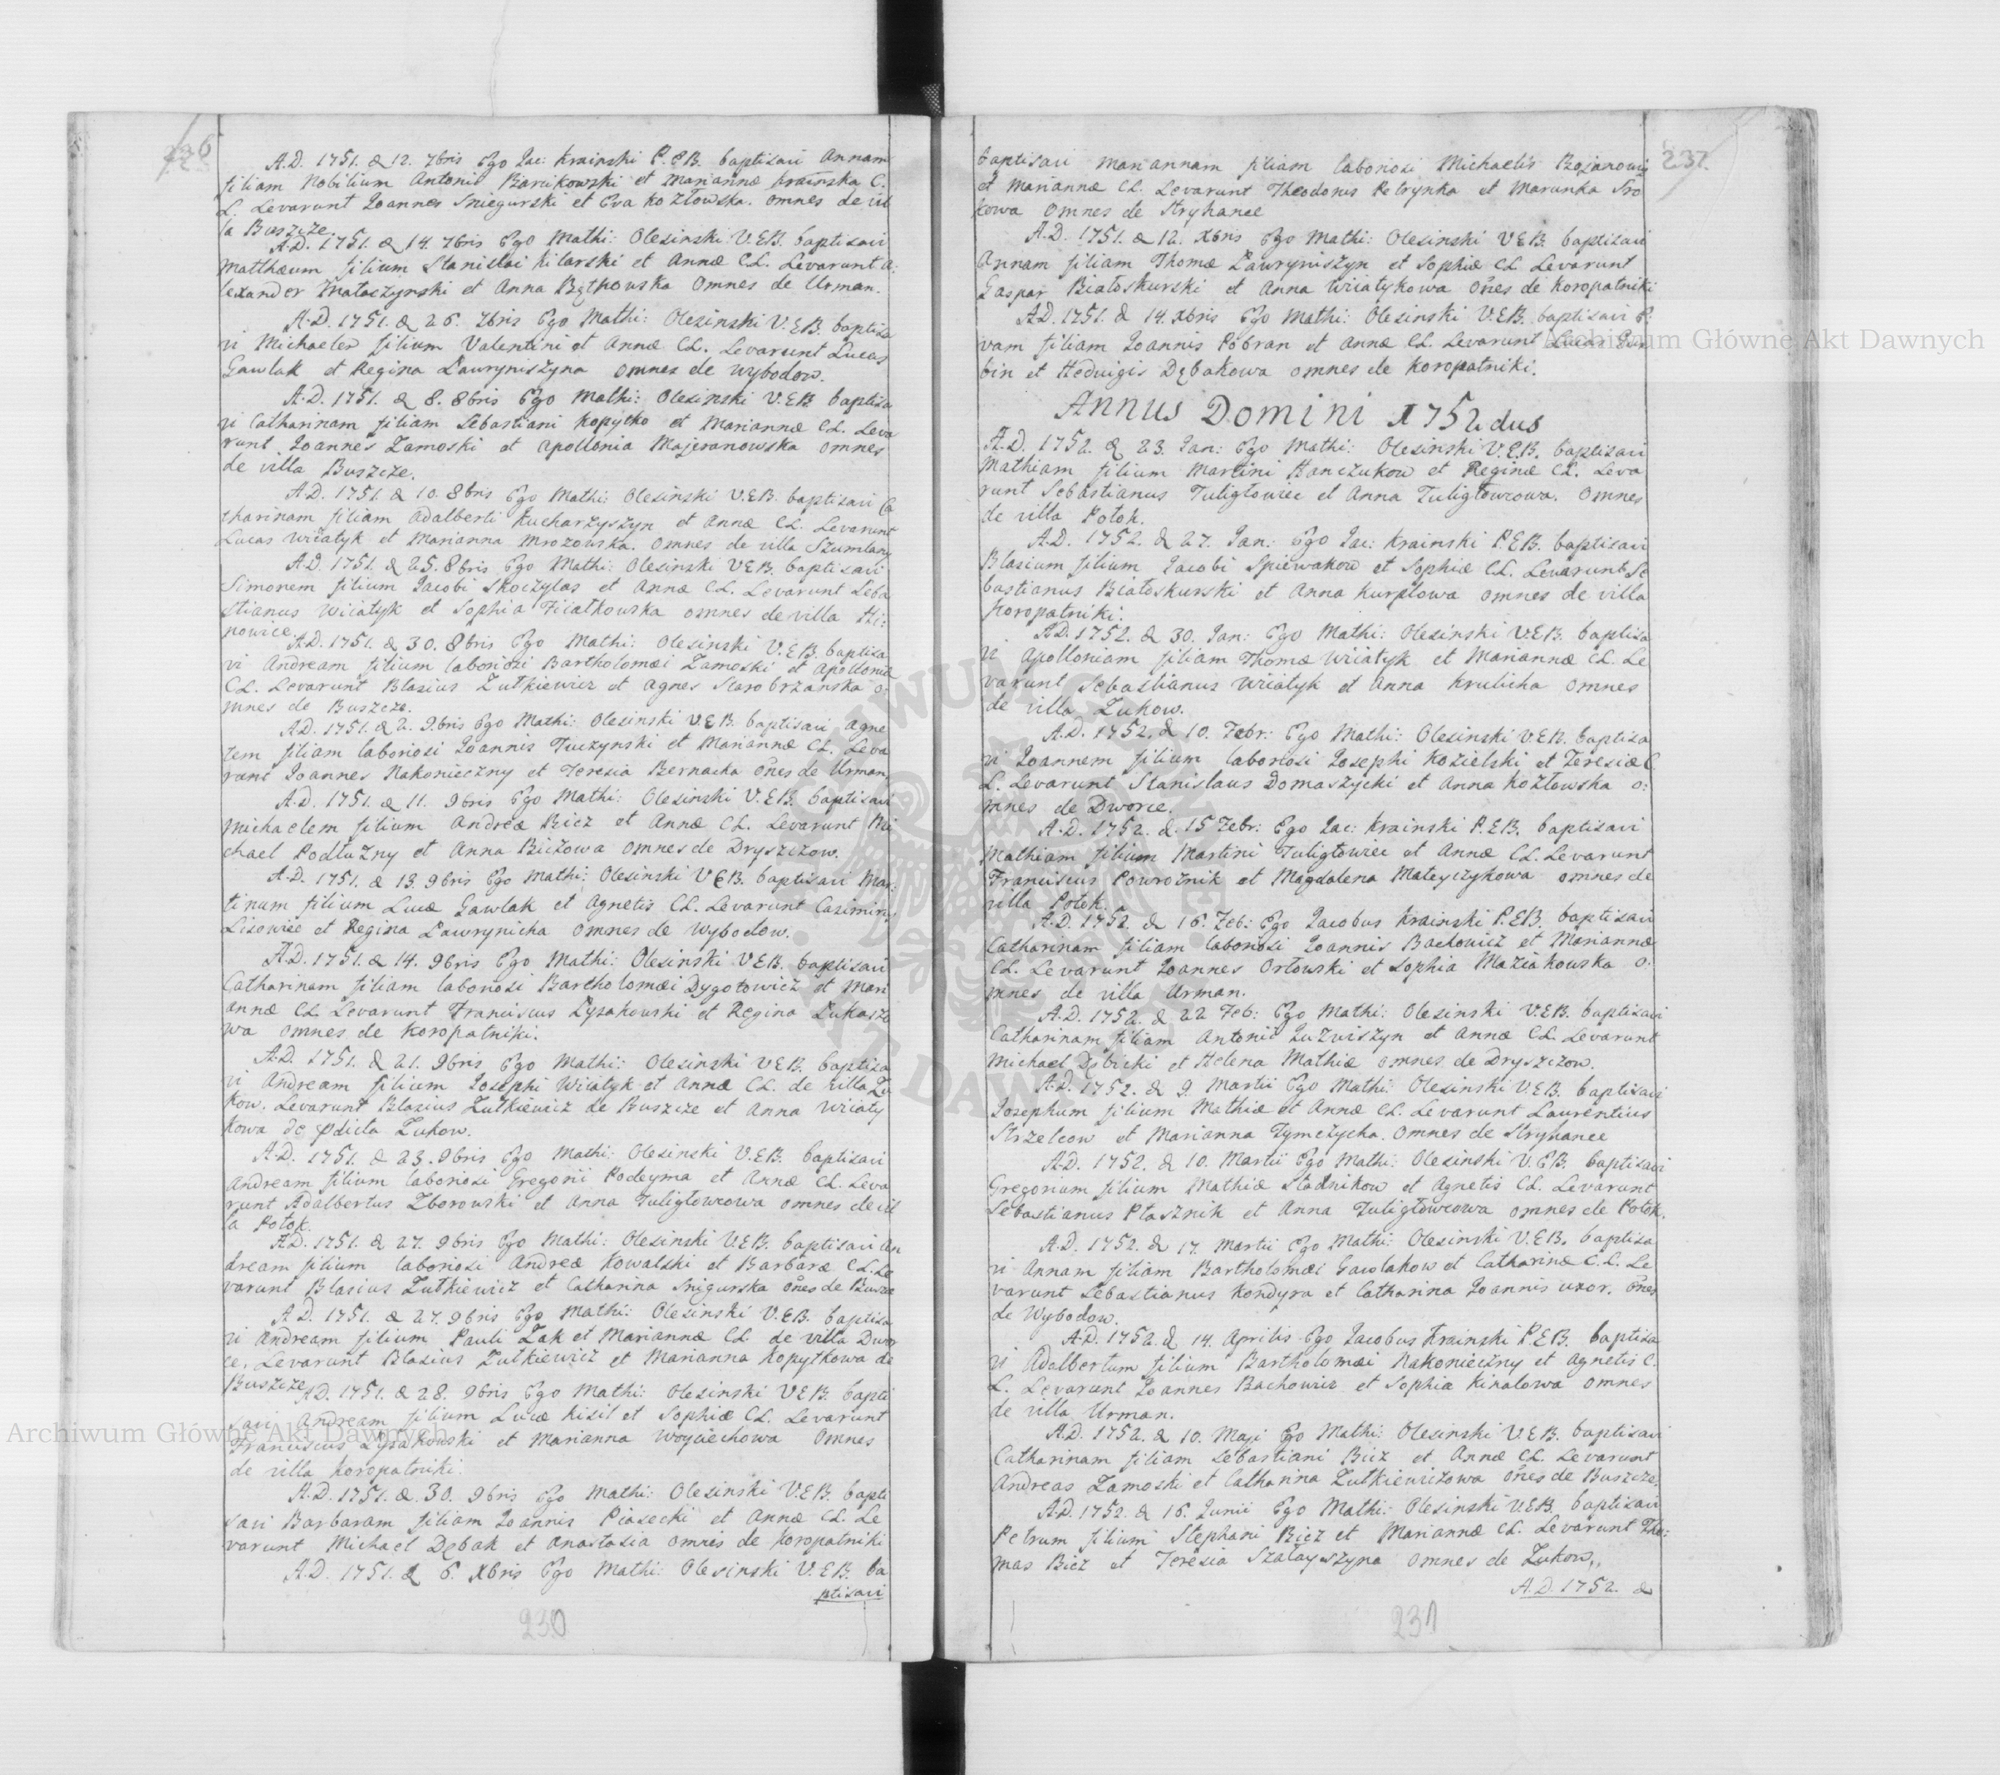 226
A.D. 1751. d 12. 7bris Ego Jac: Krainski P.E.B. baptisavi Annam
filiam Nobilium Antonii Barcikowski et Mariannæ Krainska C.
L. Levarunt Joannes Sniegurski et Eva Kozłowska. omnes de vil
la Buszcze.
A.D. 1751. d 14. 7bris Ego Mathi: Olesinski V.E.B. baptisavi
Matthæum filium Stanislai Kilarski et Annæ C.L. Levarunt A:
lexander et Anna omnes de Urman.
A.D. 1751. d 26. 7bris Ego Mathi: Olesinski V.E.B. baptisa
vi Michaelem filium Valentini et Annæ CL. Levarunt Lucas
Gawlak et Regina Ławryniszyna omnes de Wybodow.
A.D. 1751. d 8. 8bris Ego Mathi: Olesinski V.E.B. baptisa
vi Catharinam filiam Sebastiani Kopytko et Mariannæ CL. Leva
runt Joannes Zamoski et Apollonia Majeranowska omnes
de villa Buszcze.
A.D. 1751. d 10. 8bris Ego Mathi: Olesinski V.E.B. baptisavi Ca
tharinam filiam Adalberti Kucharzyszyn et Annæ CL. Levarunt
Lucas Wiiatyk et Marianna Mrozowska. omnes de villa Szumlany
A.D. 1751. d 25. 8bris Ego Mathi: Olesinski VEB. baptisavi
Simonem filium Jacobi Skoczylas et Annæ CL. Levarunt Seba
stianus Wiiatyk et Sophia Fiiałkowska omnes de villa Hi:
nowice.
A.D. 1751. d 30. 8bris Ego Mathi: Olesinski V.E.B. baptisa
vi Andream filium laboriosi Bartholomæi Zamoski et Apolloniæ
CL. Levarunt Blasius Zutkiewicz et Agnes Starobrzanska o:
mnes de Buszcze.
A.D. 1751. d 2. 9bris Ego Mathi: Olesinski VEB. baptisavi Agne
tem filiam laboriosi Joannis Tuczynski et Mariannæ CL. Leva
runt Joannes Nakonieczny et Teresia Bernacka oñes de Urman
A.D. 1751. d 11. 9bris Ego Mathi: Olesinski V.E.B. baptisavi
Michaelem filium Andreæ Bicz et Annæ CL. Levarunt Mi
chael Podłuzny et Anna Biczowa omnes de Dryszczow.
A.D. 1751. d 13. 9bris Ego Mathi: Olesinski VEB. baptisavi Mar:
tinum filium Lucæ Gawlak et Agnetis CL. Levarunt Casimirus
Lisowiec et Regina Ławrynicka omnes de Wybodow.
A.D. 1751. d 14. 9bris Ego Mathi: Olesinski V.E.B. baptisavi
Catharinam filiam laboriosi Bartholomæi Dygotowicz et Mari
annæ CL Levarunt Franciscus Łysakowski et Regina Łukaszo
wa omnes de Koropatniki.
A.D. 1751. d 21. 9bris Ego Mathi: Olesinski V.E.B. baptisa
vi Andream filium Josephi Wiiatyk et Annæ CL. de villa Żu
kow. Levarunt Blasius Zutkiewicz de Buszcze et Anna Wiiaty
kowa de pdicta Żukow.
A.D. 1751. d 23. 9bris Ego Mathi: Olesinski V.E.B. baptisavi
Andream filium laboriosi Gregorii Podeyma et Annæ CL. Leva
runt Adalbertus Zborowski et Anna Tuligłowcowa omnes de vil
la Potok.
A.D. 1751. d 27. 9bris Ego Mathi: Olesinski V.E.B. baptisavi An
dream filium laboriosi Andreæ Kowalski et Barbaræ C.L. Le
varunt Blasius Zutkiewicz et Catharina Snigurska oñes de Buszcze
A.D. 1751. d 27. 9bris Ego Mathi: Olesinski V.E.B. baptisa
vi Andream filium Pauli Żak et Mariannæ CL. de villa Dwor
ce. Levarunt Blasius Zutkiewicz et Marianna Kopytkowa de
Buszcze
A.D. 1751. d 28. 9bris Ego Mathi: Olesinski VEB. bapti
savi Andream filium Lucæ Kisil et Sophiæ CL. Levarunt
Franciscus Łysakowski et Marianna Woyciechowa omnes
de villa Koropatniki.
A.D. 1751. d. 30. 9bris Ego Mathi: Olesinski V.E.B. bapti
savi Barbaram filiam Joannis Piasecki et Annæ CL. Le
varunt Michael Dębak et Anastasia omnes de Koropatniki
A.D. 1751. d 6. Xbris Ego Mathi: Olesinski V.E.B. ba
ptisavi
230
237.
baptisavi Mariannam filiam laboriosi Michaelis
et Mariannæ CL. Levarunt Theodorus Petrynka et Marunka Sro
kowa omnes de Stryhance
A.D. 1751. d 12. Xbris Ego Mathi: Olesinski VEB. baptisavi
Annam filiam Thomæ Ławryniszyn et Sophiæ CL. Levarunt
Gaspar Białoskurski et Anna Wiiatykowa oñes de Koropatniki
A.D. 1751. d 14. Xbris Ego Mathi: Olesinski V.E.B. baptisavi E:
vam filiam Joannis Pobran et Annæ CL. Levarunt Lucas Gur
bin et Hedvigis Dębakowa omnes de Koropatniki.
Annus Domini 1752dus
A.D. 1752. d 23. Jan: Ego Mathi: Olesinski V.E.B. baptisavi
Mathiam filium Martini Hanczukow et Reginæ CL. Leva
runt Sebastianus Tuligłowiec et Anna Tuligłowcowa. omnes
de villa Potok.
A.D. 1752. d 27. Jan: Ego Jac: Krainski P.E.B. baptisavi
Blasium filium Jacobi Spiewakow et Sophiæ CL. Levarunt Se
bastianus Białoskurski et Anna Kurpłowa omnes de villa
Koropatniki.
A.D. 1752. d 30. Jan: Ego Mathi: Olesinski V.E.B. baptisa
vi Apolloniam filiam Thomæ Wiiatyk et Mariannæ CL. Le
varunt Sebastianus Wiiatyk et Anna Krulicka omnes
de villa Żukow.
A.D. 1752. d 10. Febr: Ego Mathi: Olesinski V.E.B. baptisa
vi Joannem filium laboriosi Josephi Kozielski et Teresiæ C
L. Levarunt Stanislaus Domaszycki et Anna Kozłowska o:
mnes de Dworce.
A.D. 1752. d. 15 Febr: Ego Jac: Krainski P.E.B. baptisavi
Mathiam filium Martini Tuligłowiec et Annæ CL. Levarunt
Franciscus Powroznik et Magdalena Mateyczykowa omnes de
villa Potok.
A.D. 1752. d 16. Feb: Ego Jacobus Krainski P.E.B. baptisavi
Catharinam filiam laboriosi Joannis Bachowicz et Mariannæ
CL. Levarunt Joannes Orłowski et Sophia Maziakowska o:
mnes de villa Urman.
A.D. 1752. d 22 Feb: Ego Mathi: Olesinski V.E.B. baptisavi
Catharinam filiam Antonii Łuzwiszyn et Annæ CL. Levarunt
Michael Dębicki et Helena Mathiæ omnes de Dryszczow.
A.D. 1752. d 9. Martii Ego Mathi: Olesinski V.E.B. baptisavi
Josephum filium Mathiæ et Annæ CL. Levarunt Laurentius
Strzelcow et Marianna Tymczycka. omnes de Stryhance
A.D. 1752. d 10. Martii Ego Mathi: Olesinski V.E.B. baptisavi
Gregorium filium Mathiæ Stadnikow et Agnetis CL. Levarunt
Sebastianus Ptasznik et Anna Tuligłowcowa omnes de Potok.
A.D. 1752. d 17. Martii Ego Mathi: Olesinski V.E.B. baptisa
vi Annam filiam Bartholomæi Gawlakow et Catharinæ C.L. Le
varunt Sebastianus Kondyra et Catharina Joannis uxor. oñes
de Wybodow.
A.D. 1752. d 14. Aprilis Ego Jacobus Krainski P.E.B. baptisa
vi Adalbertum filium Bartholomæi Nakonieczny et Agnetis C.
L. Levarunt Joannes Bachowicz et Sophia Kinalowa omnes
de villa Urman.
A.D. 1752. d 10. Maji Ego Mathi: Olesinski V.E.B. baptisavi
Catharinam filiam Sebastiani Bicz et Annæ CL. Levarunt
Andreas Zamoski et Catharina Zutkiewiczowa oñes de Buszcze.
A.D. 1752. d 16. Junii Ego Mathi: Olesinski V.E.B. baptisavi
Petrum filium Stephani Bicz et Mariannæ CL. Levarunt Tho:
mas Bicz et Teresia Szałayszyna omnes de Żukow.
A.D. 1752. d
231
Archiwum Główne Akt Dawnych
Archiwum Główne Akt Dawnych